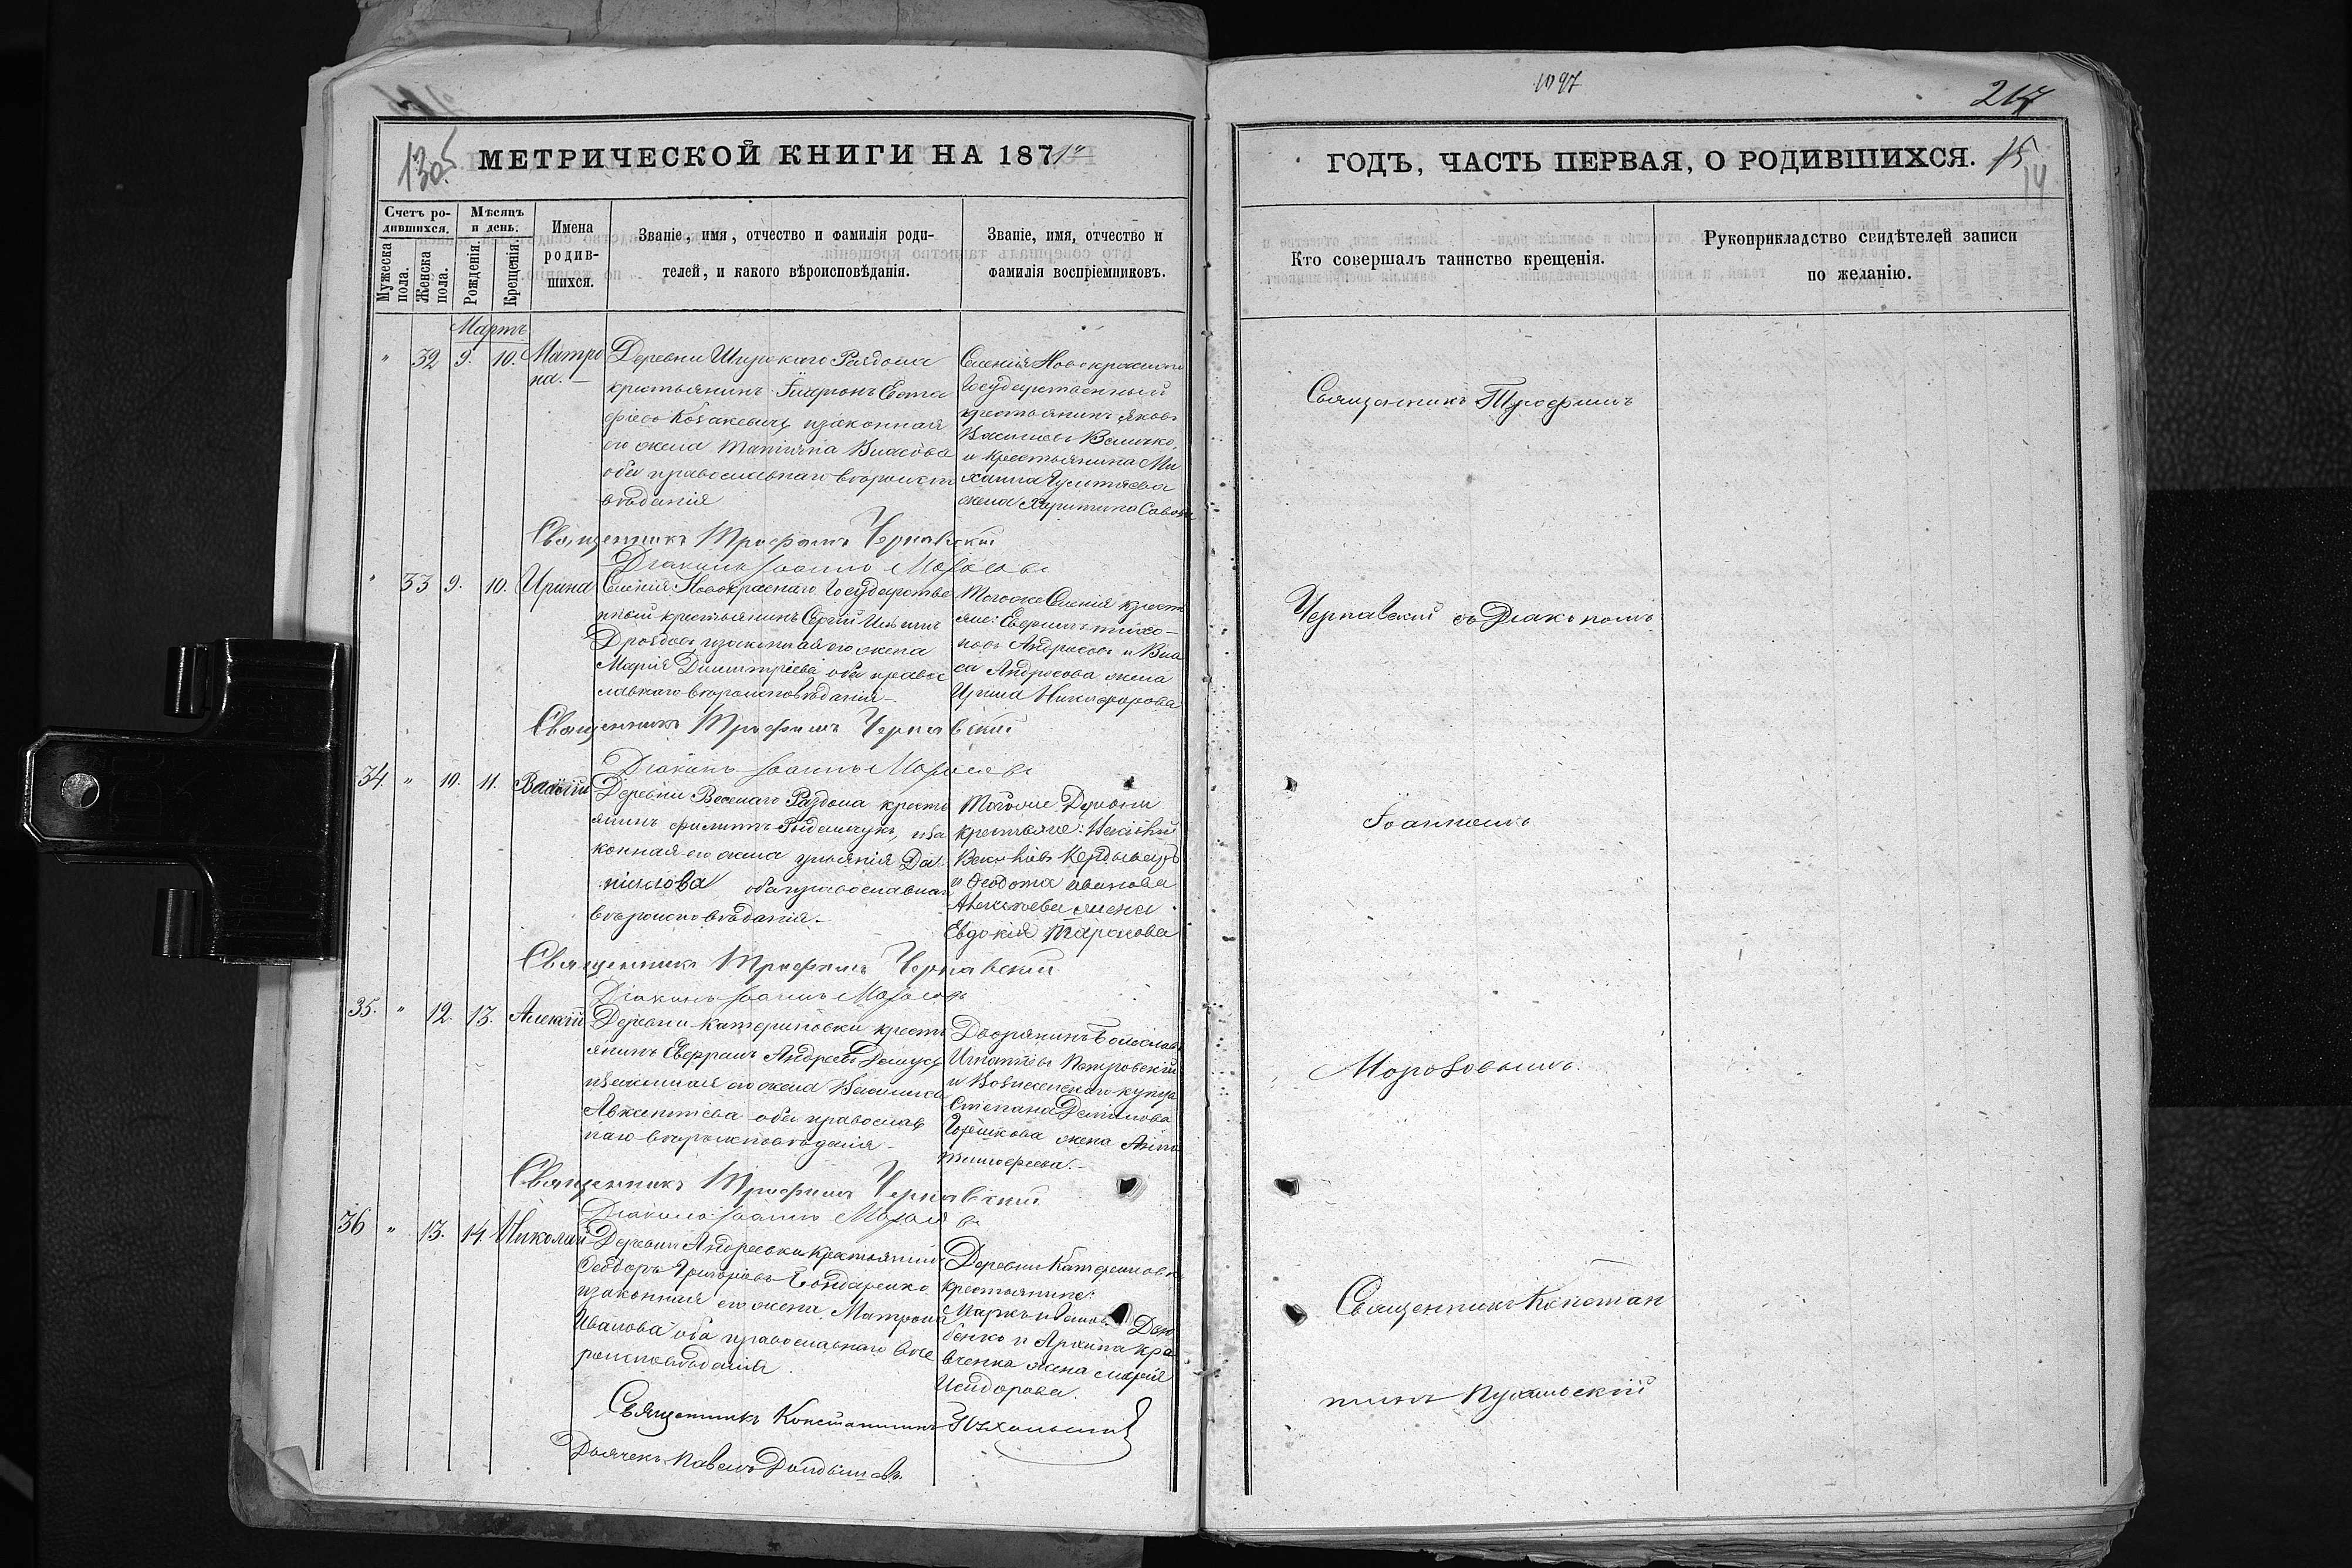 1305
МЕТРИЧЕСКОЙ КНИГИ НА 1871й
Счетъ ро-
дившихся.
Мѣсяцъ
и день.
Мужеска
пола.
Женска
пола.
Рожденія.
Крещенія.
Имена
родив-
шихся.
Званіе, имя, отчество и фамилія роди-
телей, и какого вѣроисповѣданія.
Званіе, имя, отчество и
фамилія воспріемниковъ.
Мартъ
" 32 9. 10. Матро
на.
Деревни Широкаго Раздола
крестьянинъ Евста
фіевъ Козакевичъ изаконная
его жена Татіяна Власова
оба православнаго вѣроиспо
вѣданія
Селенія Новокраснаго
Государственный
крестьянинъ Яковъ
Василіевъ Величко,
и крестьянина Ми
хаила
жена Харитина Савова
Священникъ Трофимъ Чернавскій
Діаконъ Іоаннъ Морозовъ
" 33 9. 10. Ирина
Селенія Новокраснаго Государстве
нный крестьянинъ Сергій Ильинъ
Дроздовъ, изаконная его жена
Марія Димитріева оба правос
лавнаго вѣроисповѣданія
Тогоже Селенія крест
яне: Евфимъ Тихо-
новъ Андросовъ и Вла
са Андросова жена
Ирина Никифорова
Священникъ Трофимъ Чернавскій
Діаконъ Іоаннъ Морозовъ
34. " 10. 11. Василій
Деревни Веселаго Раздола кресть
янинъ Филиппъ иза
конная его жена Да
ніилова оба православнаго
вѣроисповѣданія
Тогоже Деревни
крестьяне:
и Ѳедота Иванова
Алексѣева жена
Евдокія Тарасова
Священникъ Трофимъ Чернавскій
Діаконъ Іоаннъ Морозовъ
35. " 12. 13. Алексій
Деревни Катериновки кресть
янинъ Андреевъ
изаконная его жена Василиса
Авксентіева оба православ
наго вѣроисповѣданія
Дворянинъ Болеславъ
Игнатіевъ Петровскій
и Вознесенскаго купца
Степана Даніилова
Горшкова жена Анна
Тимофеева.
Священникъ Трофимъ Чернавскій
Діаконъ Іоаннъ Морозовъ
36 " 13. 14. Николай
Деревни Андреевки крестьянинъ
Ѳеодоръ Григоріевъ Бондаренко
изаконная его жена Матрона
Иванова оба православнаго вѣ
роисповѣданія.
Деревни Катериновки
крестьянине:
Маркъ
бенко и Архипа Кра
вченка жена Марія
Исидорова.
Священникъ Константинъ Пухальскій
Дьячекъ Павелъ
1097
217
ГОДЪ, ЧАСТЬ ПЕРВАЯ, О РОДИВШИХСЯ.
15
14
Кто совершалъ таинство крещенія.
Рукоприкладство свидѣтелей записи
по желанію.
Священникъ Трофимъ
Чернавскій съ Діакономъ
Іоанномъ
Морозовымъ.
Священникъ Констан
тинъ Пухальскій